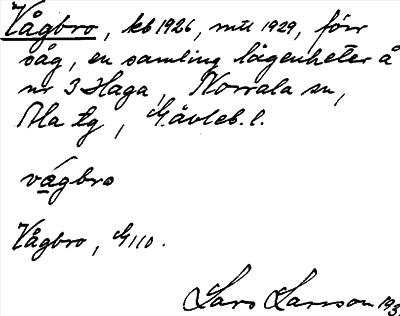 Vågbro, kb 1926, mtl 1929, förr
såg, en samling lägenheter å
nr 3 Haga, Norrala sn,
Ala tg, Gävleb. l.
vågbro
Vågbro, G110.
Lars Larsson 193